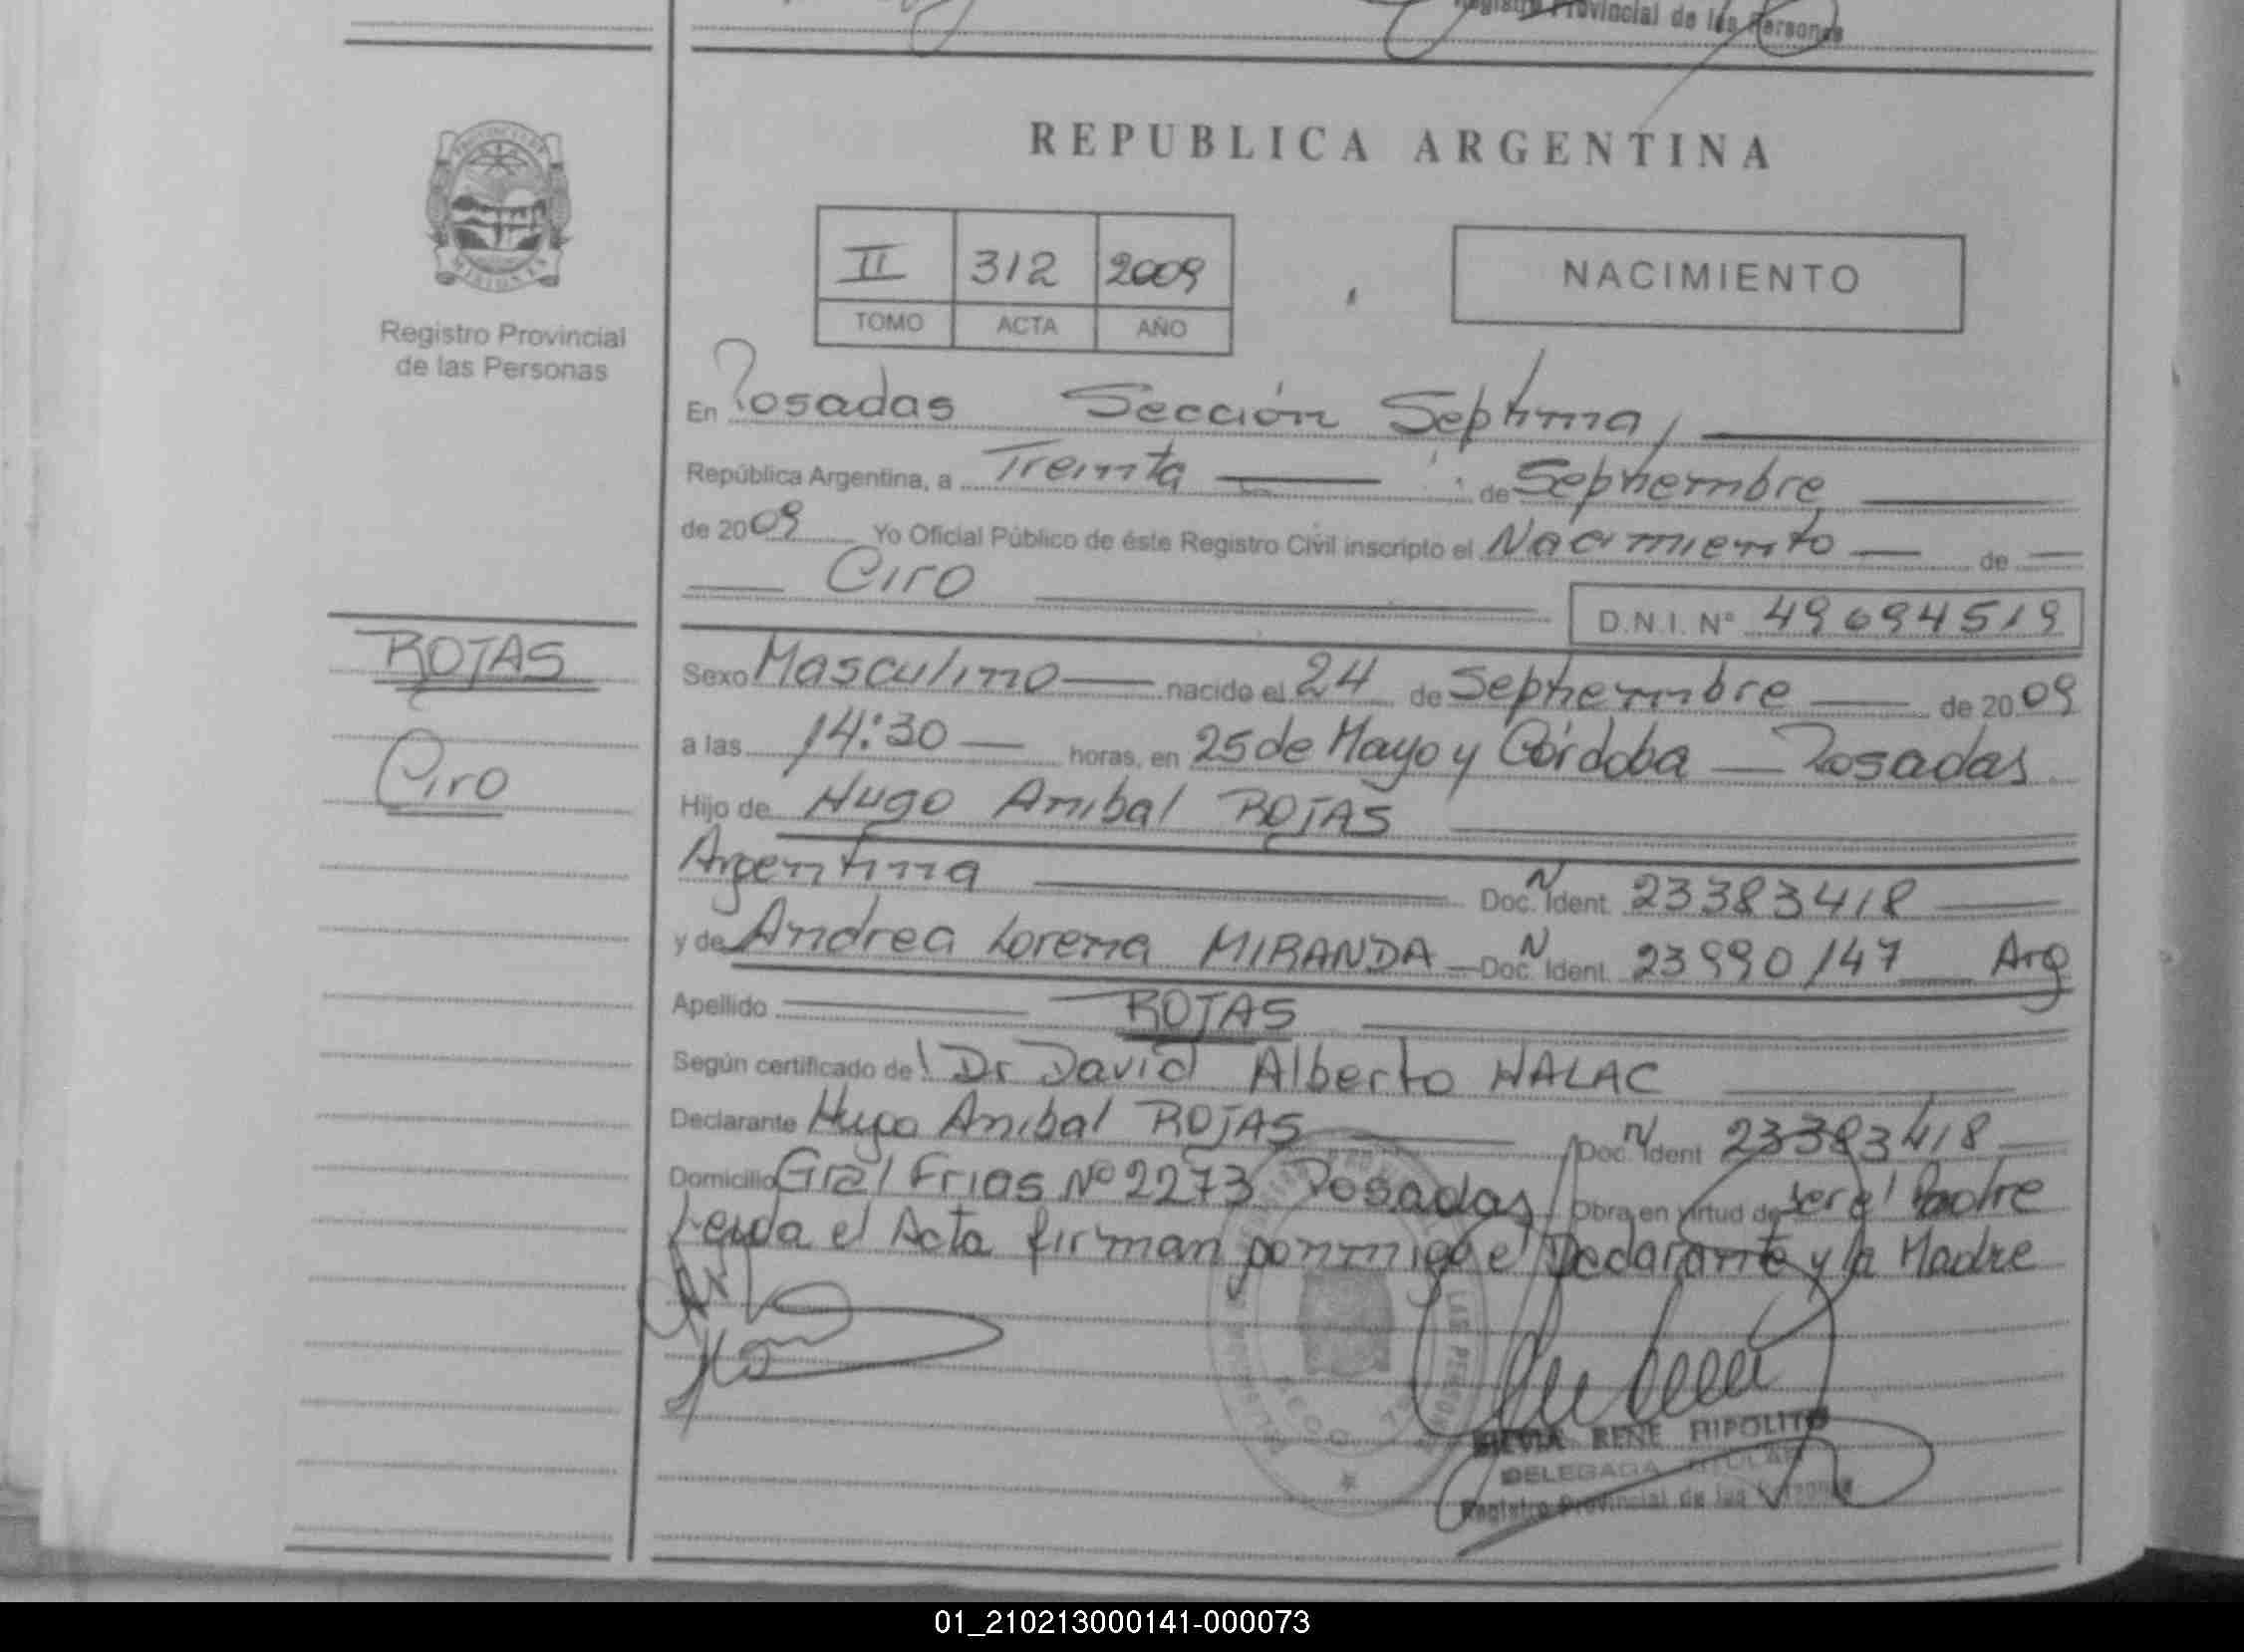 Registro Provincial de las Personas
REPUBLICA ARGENTINA
II 312 2009
TOMO ACTA AÑO
NACIMIENTO
Registro Provincial
de las Personas
MISIONES
En Posadas Sección Septima,
República Argentina, a Treinta de Septiembre
de 2009 Yo Oficial Público de éste Registro Civil inscripto el Nacimiento de
Ciro
D.N.I. N° 49694519
ROJAS
Ciro
Sexo Masculino nacido el 24 de Septiembre de 2009
a las 14:30 horas, en 25 de Mayo y Córdoba Posadas
Hijo de Hugo Anibal ROJAS
Argentina Doc. N Ident. 23383418
y de Andrea Lorena MIRANDA Doc. N Ident. 23990147 Arg
Apellido ROJAS
Según certificado del Dr David Alberto HALAC
Declarante Hugo Anibal ROJAS Doc. N Ident 23383418
Domicilio Gral Frias Nº 2273 Posadas Obra en virtud de ser el Padre
Leida el Acta firman conmigo el Declarante y la Madre
SILVIA RENE HIPOLITO
DELEGADA TITULAR
Registro Provincial de las Personas
01_210213000141-000073